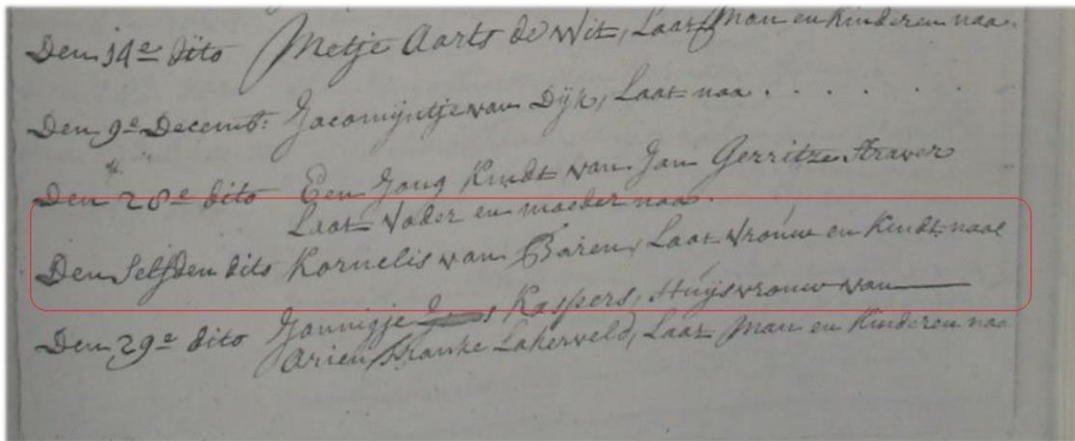 Den 14e dito Metje Aarts de Wit, Laat Man en Kinderen naa.
Den 9e Decemb: Jacomijntje van Dijk, Laat naa . . . . . .
Den 28e dito Een Jong Kindt van Jan Gerritze Straver
Laat Vader en moeder naa.
Den Selfden dito Kornelis van Baren, Laat Vrouw en Kindt naa
Den 29e dito Jannigje Kaspers, Huijsvrouw van
Arien Franke Lakerveld, Laat Man en Kinderen naa